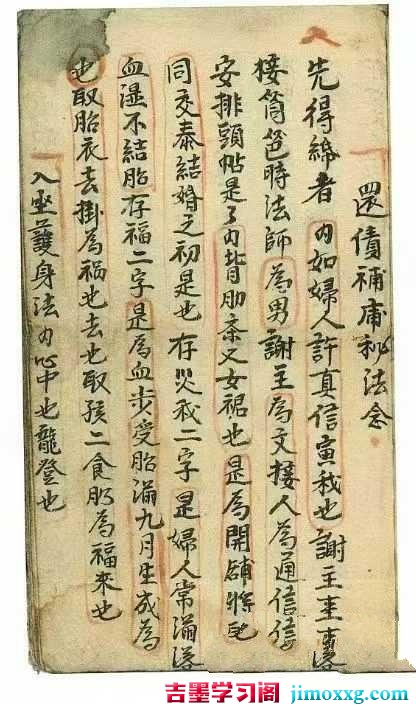 還債補庫秘法念
先得綿者内如婦人許真信寅我也謝主
接筒筶時法師為男謝主為文接人為通信信
安排頭帖是了内背肋柰又女裙也是為開鋪
同交泰結婚之初是也存災我二字是婦人常滿
血湿不結胎存福二字是為血步受胎滿九月生成為
也取胎衣去掛為禍也去也取孩二食肠為福来也
入坐護身法内心中也龍登也
吉墨学习阁 jimoxxg.com